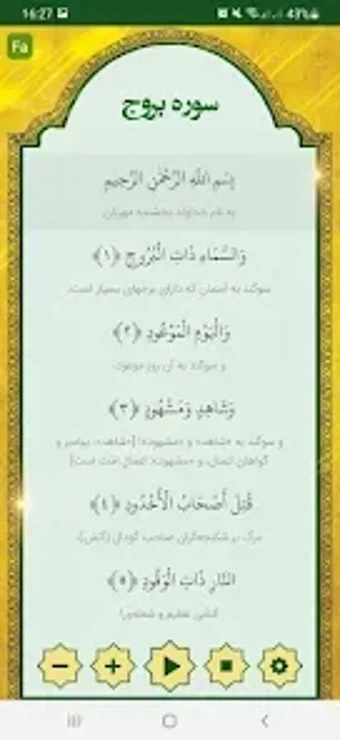 16:27
43%
Fa
سوره بروج
بِسْمِ اللَّهِ الرَّحْمَٰنِ الرَّحِيمِ
به نام خداوند بخشنده مهربان
وَالسَّمَاءِ ذَاتِ الْبُرُوجِ ﴿۱﴾
سوگند به آسمان که دارای برجهای بسیار است،
وَالْيَوْمِ الْمَوْعُودِ ﴿۲﴾
و سوگند به آن روز موعود،
وَشَاهِدٍ وَمَشْهُودٍ ﴿۳﴾
و سوگند به «شاهد» و «مشهود»! [«شاهد»: پیامبر و
گواهان اعمال، و «مشهود»: اعمال امّت است]
قُتِلَ أَصْحَابُ الْأُخْدُودِ ﴿٤﴾
مرگ بر شکنجه‌گران صاحب گودال (آتش)،
النَّارِ ذَاتِ الْوَقُودِ ﴿۵﴾
آتشی عظیم و شعله‌ور!